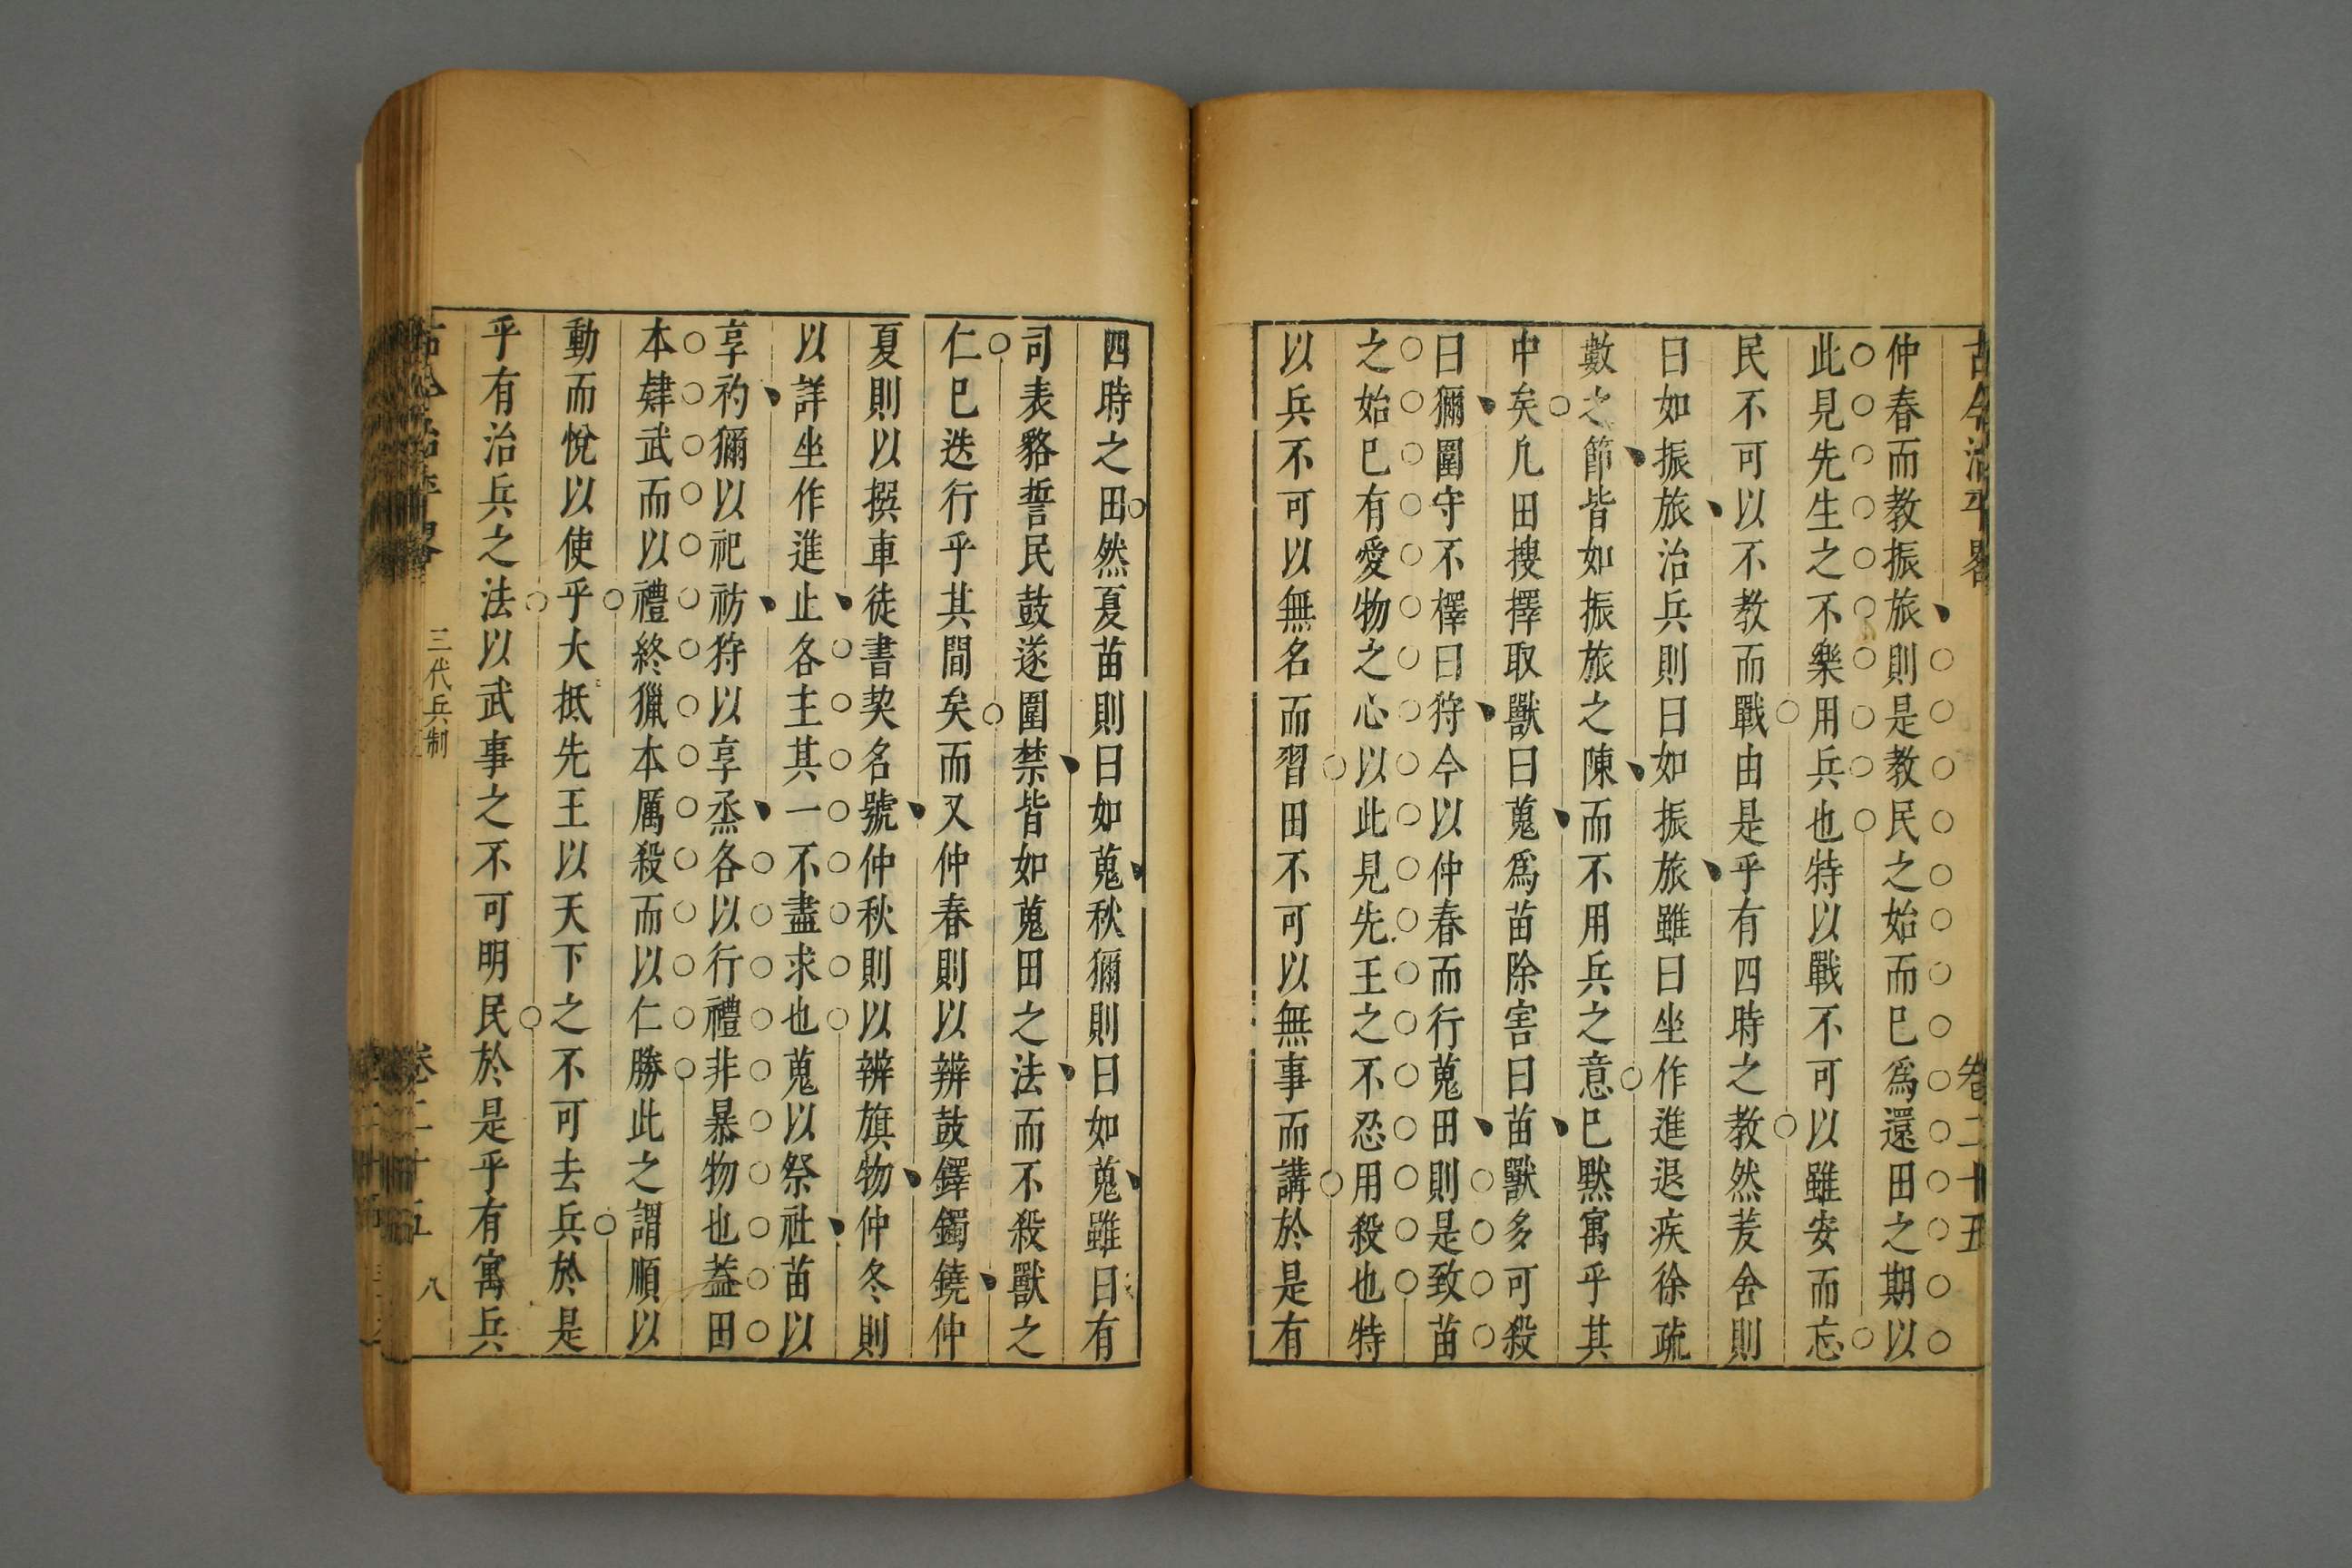 古今治平畧 卷二十五
仲春而教振旅則是教民之始而巳爲還田之期以
此見先生之不樂用兵也特以戰不可以雖安而忘
民不可以不教而戰由是乎有四時之教然茇舍則
曰如振旅治兵則曰如振旅雖曰坐作進退疾徐疏
數之節皆如振旅之陳而不用兵之意巳黙寓乎其
中矣凡田搜擇取獸曰蒐爲苗除害曰苗獸多可殺
曰獮圍守不檡曰狩今以仲春而行蒐田則是致苗
之始巳有愛物之心以此見先王之不忍用殺也特
以兵不可以無名而習田不可以無事而講於是有
四時之田然夏苗則曰如蒐秋獮則曰如蒐雖曰有
司表貉誓民鼓遂圍禁皆如蒐田之法而不殺獸之
仁巳迭行乎其間矣而又仲春則以辨鼓鐸鐲鐃仲
夏則以撰車徒書契名號仲秋則以辨旗物仲冬則
以詳坐作進止各主其一不盡求也蒐以祭社苗以
享礿獮以祀祊狩以享烝各以行禮非暴物也葢田
本肄武而以禮終獵本厲殺而以仁勝此之謂順以
動而悅以使乎大抵先王以天下之不可去兵於是
乎有治兵之法以武事之不可明民於是乎有寓兵
三代兵制 卷二十五 八